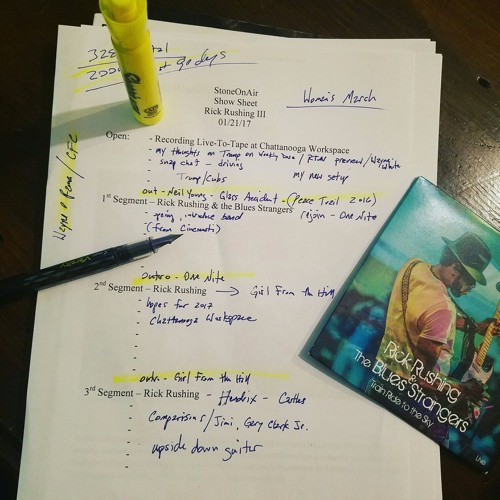 32
tal
2000
90 days
StoneOnAir
Show Sheet
Rick Rushing III
01/21/17
Women's March
Wayne o Rena / CFC
Open:
- Recording Live-To-Tape at Chattanooga Workspace
- my thoughts on Trump on Weekly Dave / RTJN preview / Wayne White
- snap chat - driving
my new setup
- Trump/Cubs
out - Neil Young - Glass Accident - (Peace Trail 2016)
1st Segment – Rick Rushing & the Blues Strangers
rejoin - One Nite
- band
(from Cincinnati)
-
-
outro - One Nite
2nd Segment – Rick Rushing → Girl From the Hill
- hopes for 2017
- Chattanooga Workspace
-
-
-
outro - Girl From the Hill
3rd Segment – Rick Rushing - Hendrix - Castles
- Comparisions / Jimi, Gary Clark Jr.
- upside down guitar
-
-
Rick Rushing
&
The Blues Strangers
Train Ride to the Sky
Live